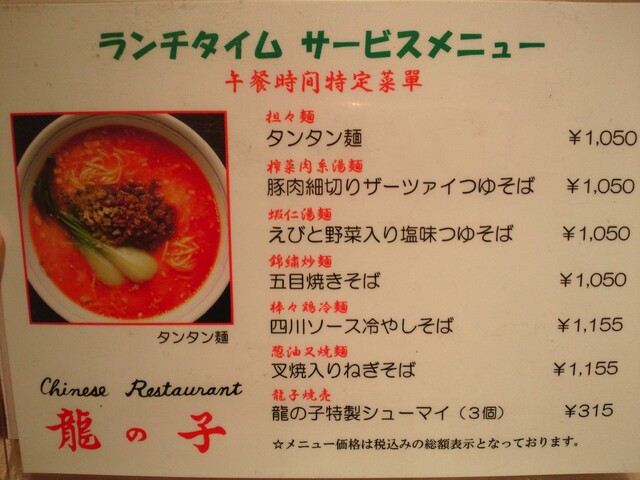 ランチタイム サービスメニュー
午餐時间特定菜單
担々麺
タンタン麺 ￥1,050
搾菜肉糸湯麺
豚肉細切りザーツァイつゆそば ￥1,050
蝦仁湯麺
えびと野菜入り塩味つゆそば ￥1,050
錦繍炒麺
五目焼きそば ￥1,050
棒々鶏冷麺
四川ソース冷やしそば ￥1,155
葱油叉焼麺
叉焼入りねぎそば ￥1,155
龍子焼売
龍の子特製シューマイ（3個） ￥315
☆メニュー価格は税込みの総額表示となっております。
タンタン麺
Chinese Restaurant
龍の子